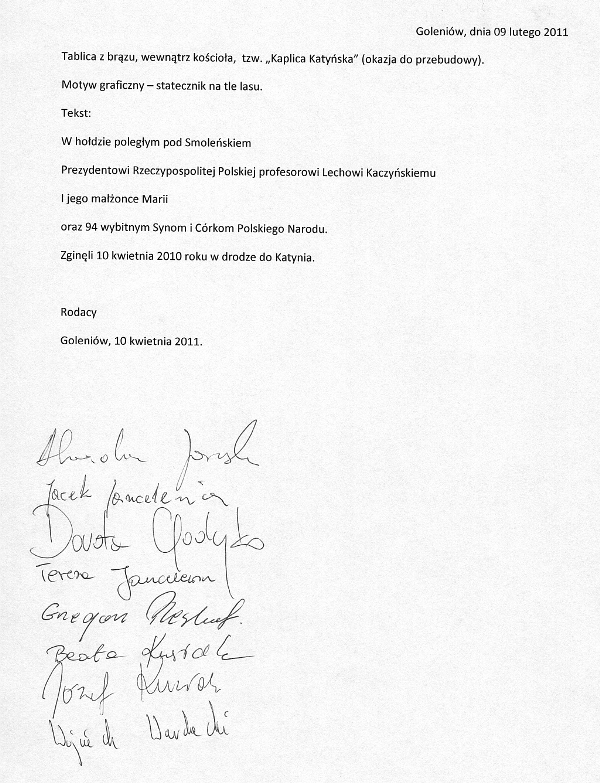 Goleniów, dnia 09 lutego 2011
Tablica z brązu, wewnątrz kościoła, tzw. „Kaplica Katyńska” (okazja do przebudowy).
Motyw graficzny – statecznik na tle lasu.
Tekst:
W hołdzie poległym pod Smoleńskiem
Prezydentowi Rzeczypospolitej Polskiej profesorowi Lechowi Kaczyńskiemu
I jego małżonce Marii
oraz 94 wybitnym Synom i Córkom Polskiego Narodu.
Zginęli 10 kwietnia 2010 roku w drodze do Katynia.
Rodacy
Goleniów, 10 kwietnia 2011.
Jacek
Dorota
Teresa
Grzegorz
Beata
Józef
Wojciech